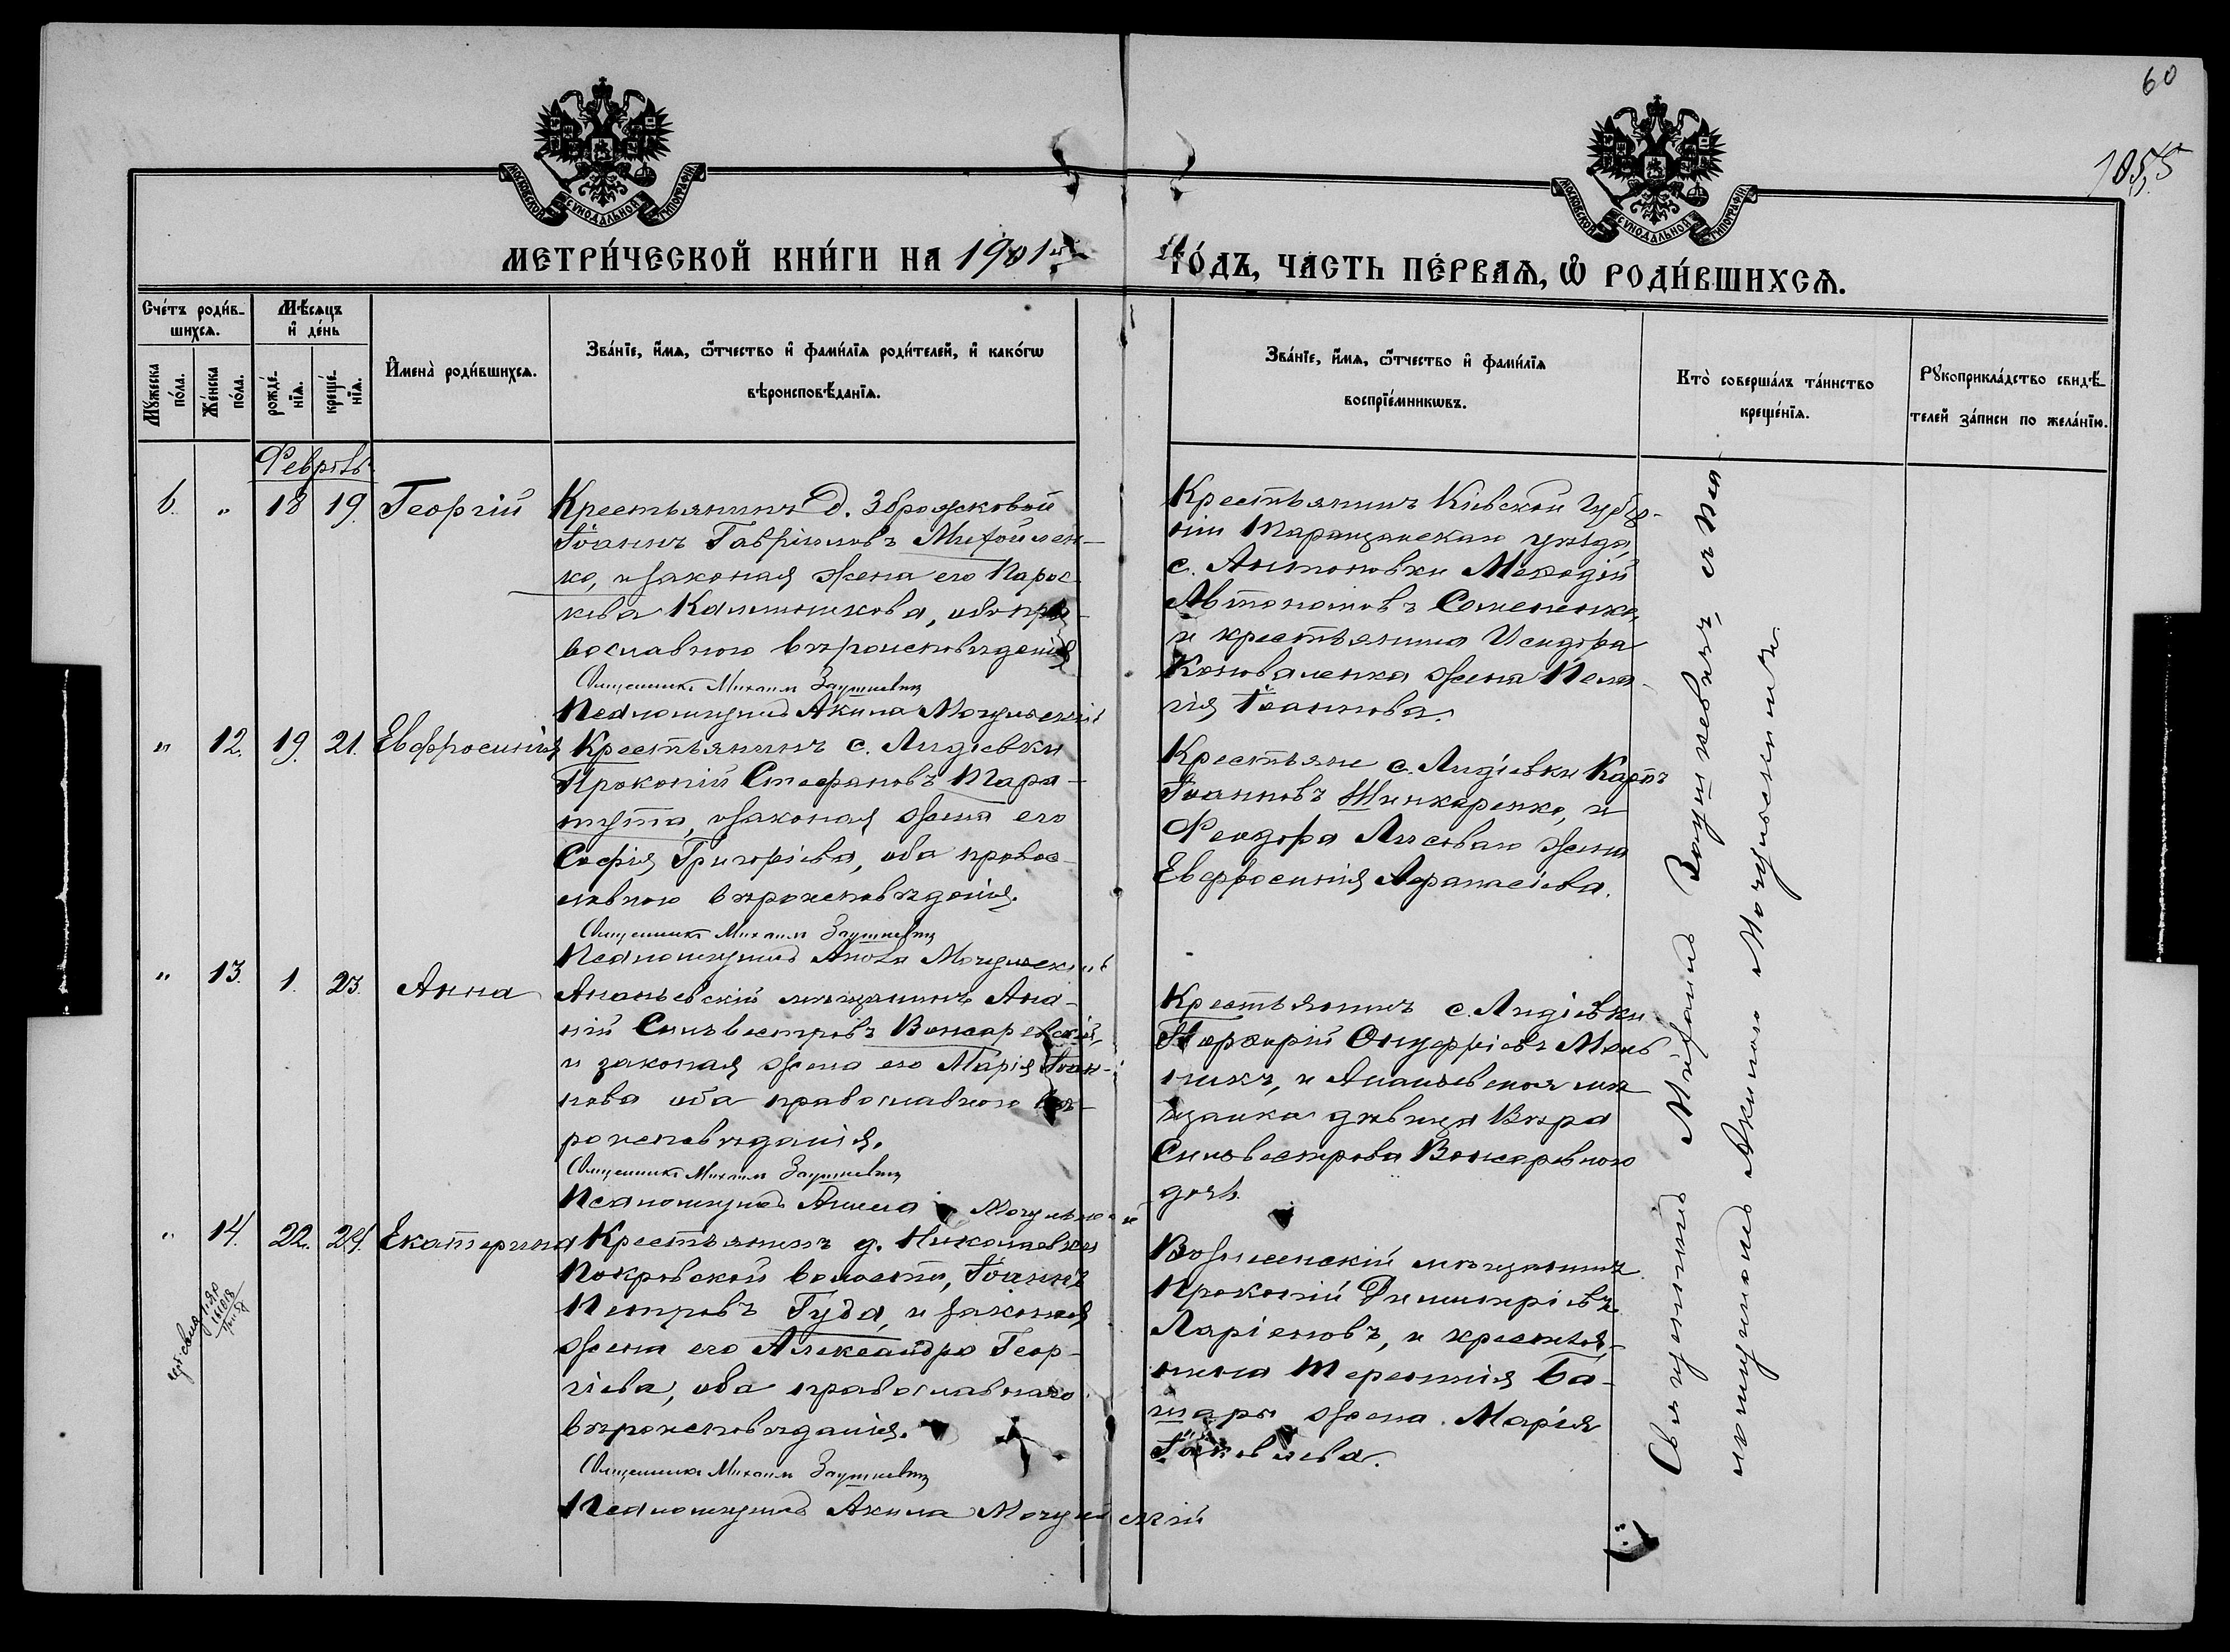 60
1055
МОСКОВСКОЙ СѴНОДАЛЬНОЙ ТИПОГРАФІИ
МОСКОВСКОЙ СѴНОДАЛЬНОЙ ТИПОГРАФІИ
МЕТРИ́ЧЕСКОЙ КНИ́ГИ НА 1901й
ГО́ДЪ, ЧА́СТЬ ПЕ́РВАѦ, Ѡ РОДИ́ВШИХСѦ.
Сче́тъ роди́в-
шихсѧ.
Мѣ́сѧцъ
и де́нь
Мꙋ́жеска
по́ла.
Же́нска
по́ла.
рожде́-
нїѧ.
креще́-
нїѧ.
Имена̀ роди́вшихсѧ.
Зва́нїе, и́мѧ, ѻ́тчество и фами́лїѧ роди́телей, и како́гѡ
вѣроисповѣ́данїѧ.
Зва́нїе, и́мѧ, ѻ́тчество и фами́лїѧ
воспрїе́мникѡвъ.
Кто̀ соверша́лъ та́инство
креще́нїѧ.
Рꙋкоприкла́дство свидѣ́-
телей за́писи по жела́нїю.
Февраль
6. " 18 19. Георгій
Крестьянинъ д. Зброжковой
Іоаннъ Гавріиловъ Михайлен-
ко, и законая жена его Парас-
кева Калиникова, оба пра-
вославного вѣроисповѣданія
Священникъ Михаилъ Заушкевичъ
Псаломщикъ Акила Мочульскій
Крестьянинъ Кіевской губер-
ніи Таращанскаго уѣзда,
с. Антоновки Меѳодій
Автономовъ Семененко,
и крестьянина Исидора
Коноваленка жена Пела-
гія Іоаннова.
" 12. 19. 21. Евфросинія
Крестьянинъ с. Лидіевки
Прокопій Стефановъ Тара-
нута, и законая жена его
Софія Григоріева, оба правос-
лавного вѣроисповѣданія.
Священникъ Михаилъ Заушкевичъ
Псаломщикъ Акила Мочульскій
Крестьяне с. Лидіевки Карпъ
Іоанновъ Шинкаренко, и
Феодора Лисоваго жена
Евфросинія Афанасіева.
" 13. 1. 23. Анна
Ананьевскій мѣщанинъ Ана-
ній Сильвестровъ Вонсаревскій,
и законая жена его Марія Іоан-
нова оба православного вѣ-
роисповѣданія.
Священникъ Михаилъ Заушкевичъ
Псаломщикъ Акила Мочульскій
Крестьянинъ с. Лидіевки
Порфирій Онуфріевъ Мель
никъ, и Ананьевская мѣ
щанка дѣвица Вѣра
Сильвестрова Вонсаревного
дочь.
" 14. 22. 24. Екатерина
Крестьянинъ д. Николаевки
Покровской волости, Іоаннъ
Петровъ Гуда, и законая
жена его Александра Геор-
гіева, оба православнаго
вѣроисповѣданія.
Священникъ Михаилъ Заушкевичъ
Псаломщикъ Акила Мочульскій
Вознесенскій мѣщанинъ
Прокопій Димитріевъ
Ларіоновъ, и крестья-
нина Терентія Ба-
шары жена Марія
Іаковлева.
Священникъ Михаилъ Заушкевичъ, съ пса-
ломщикомъ Акилою Мочульскимъ.